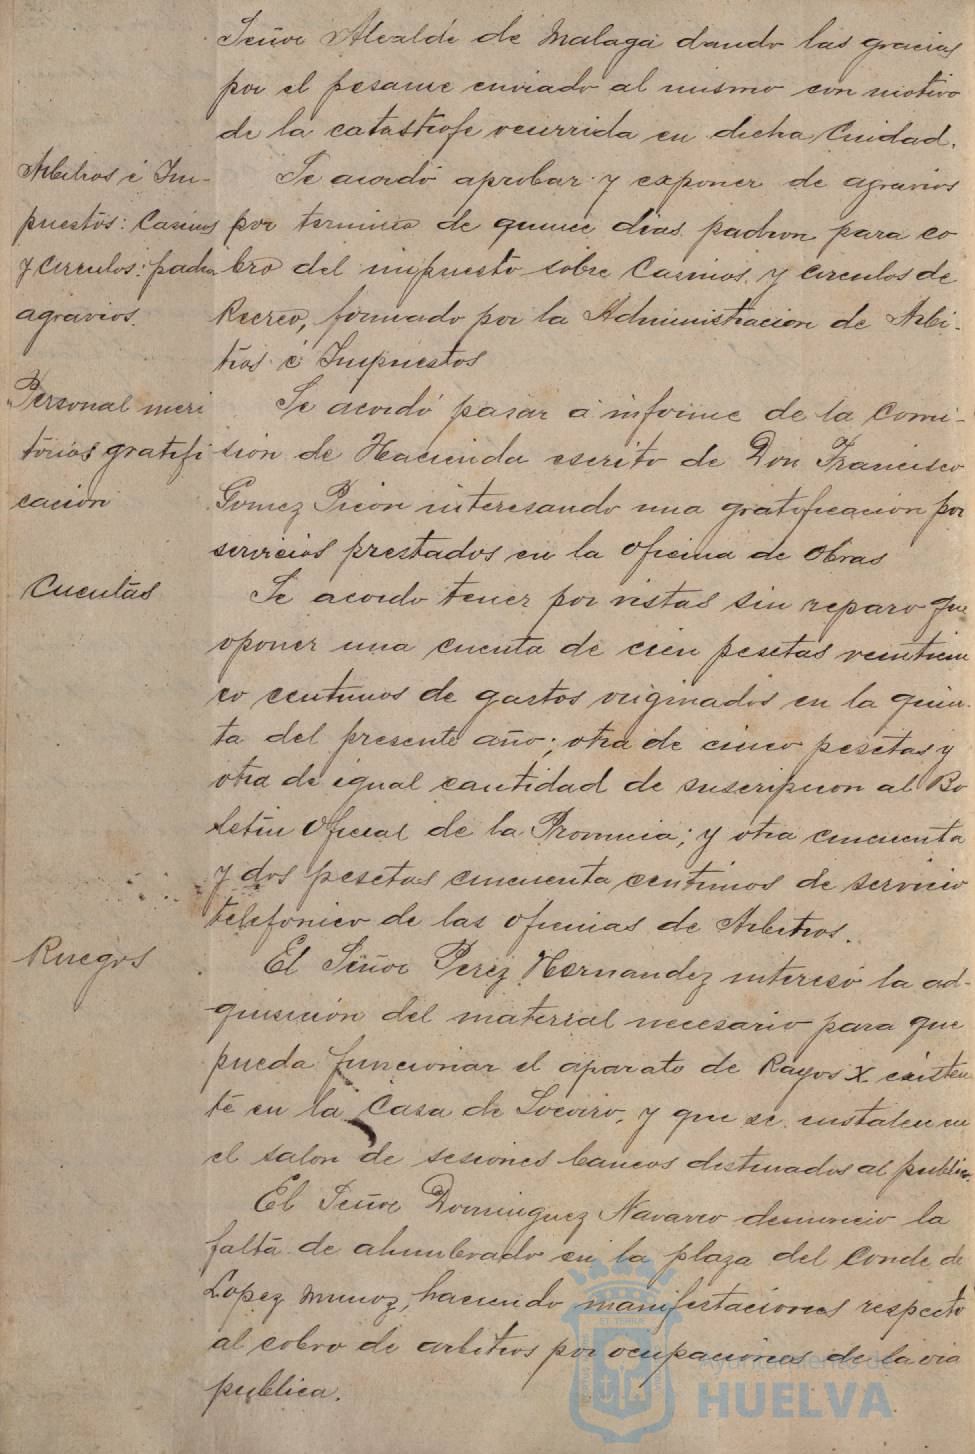 Señor Alcalde de Malaga dando las gracias
por el pesame enviado al mismo con motivo
de la catastrofe ocurrida en dicha Ciudad.
Arbitros é Im-
puestos: Casinos
y circulos: padron
agravios.
Se acordó aprobar y exponer de agravios
por termino de quince dias padron para co
bro del impuesto sobre Casinos y circulos de
Recreo, formado por la Administracion de Arbi-
trios é Impuestos
Personal meri
torios gratifi
cación
Se acordó pasar á informe de la Comi-
sion de Hacienda escrito de Don Francisco
Gomez Picón interesando una gratificación por
servicios prestados en la oficina de obras
Cuentas
Se acordo tener por vistas sin reparo que
oponer una cuenta de cien pesetas veinticin
co centimos de gastos originados en la quin-
ta del presente año; otra de cinco pesetas y
otra de igual cantidad de suscripcion al Bo
letín Oficial de la Provincia; y otra cincuenta
y dos pesetas cincuenta centimos de servicio
telefonico de las oficinas de Arbitros.
Ruegos
El Señor Perez Hernandez interesó la ad-
quisición del material necesario para que
pueda funcionar el aparato de Rayos X existen
te en la Casa de Socorro, y que se instalen en
el salon de sesiones bancos destinados al publico.
El Señor Dominguez Navarro denuncio la
falta de alumbrado en la plaza del Conde de
Lopez Muñoz, haciendo manifestaciones respecto
al cobro de arbitros por ocupaciones de la via
publica.
Ayuntamiento de
HUELVA